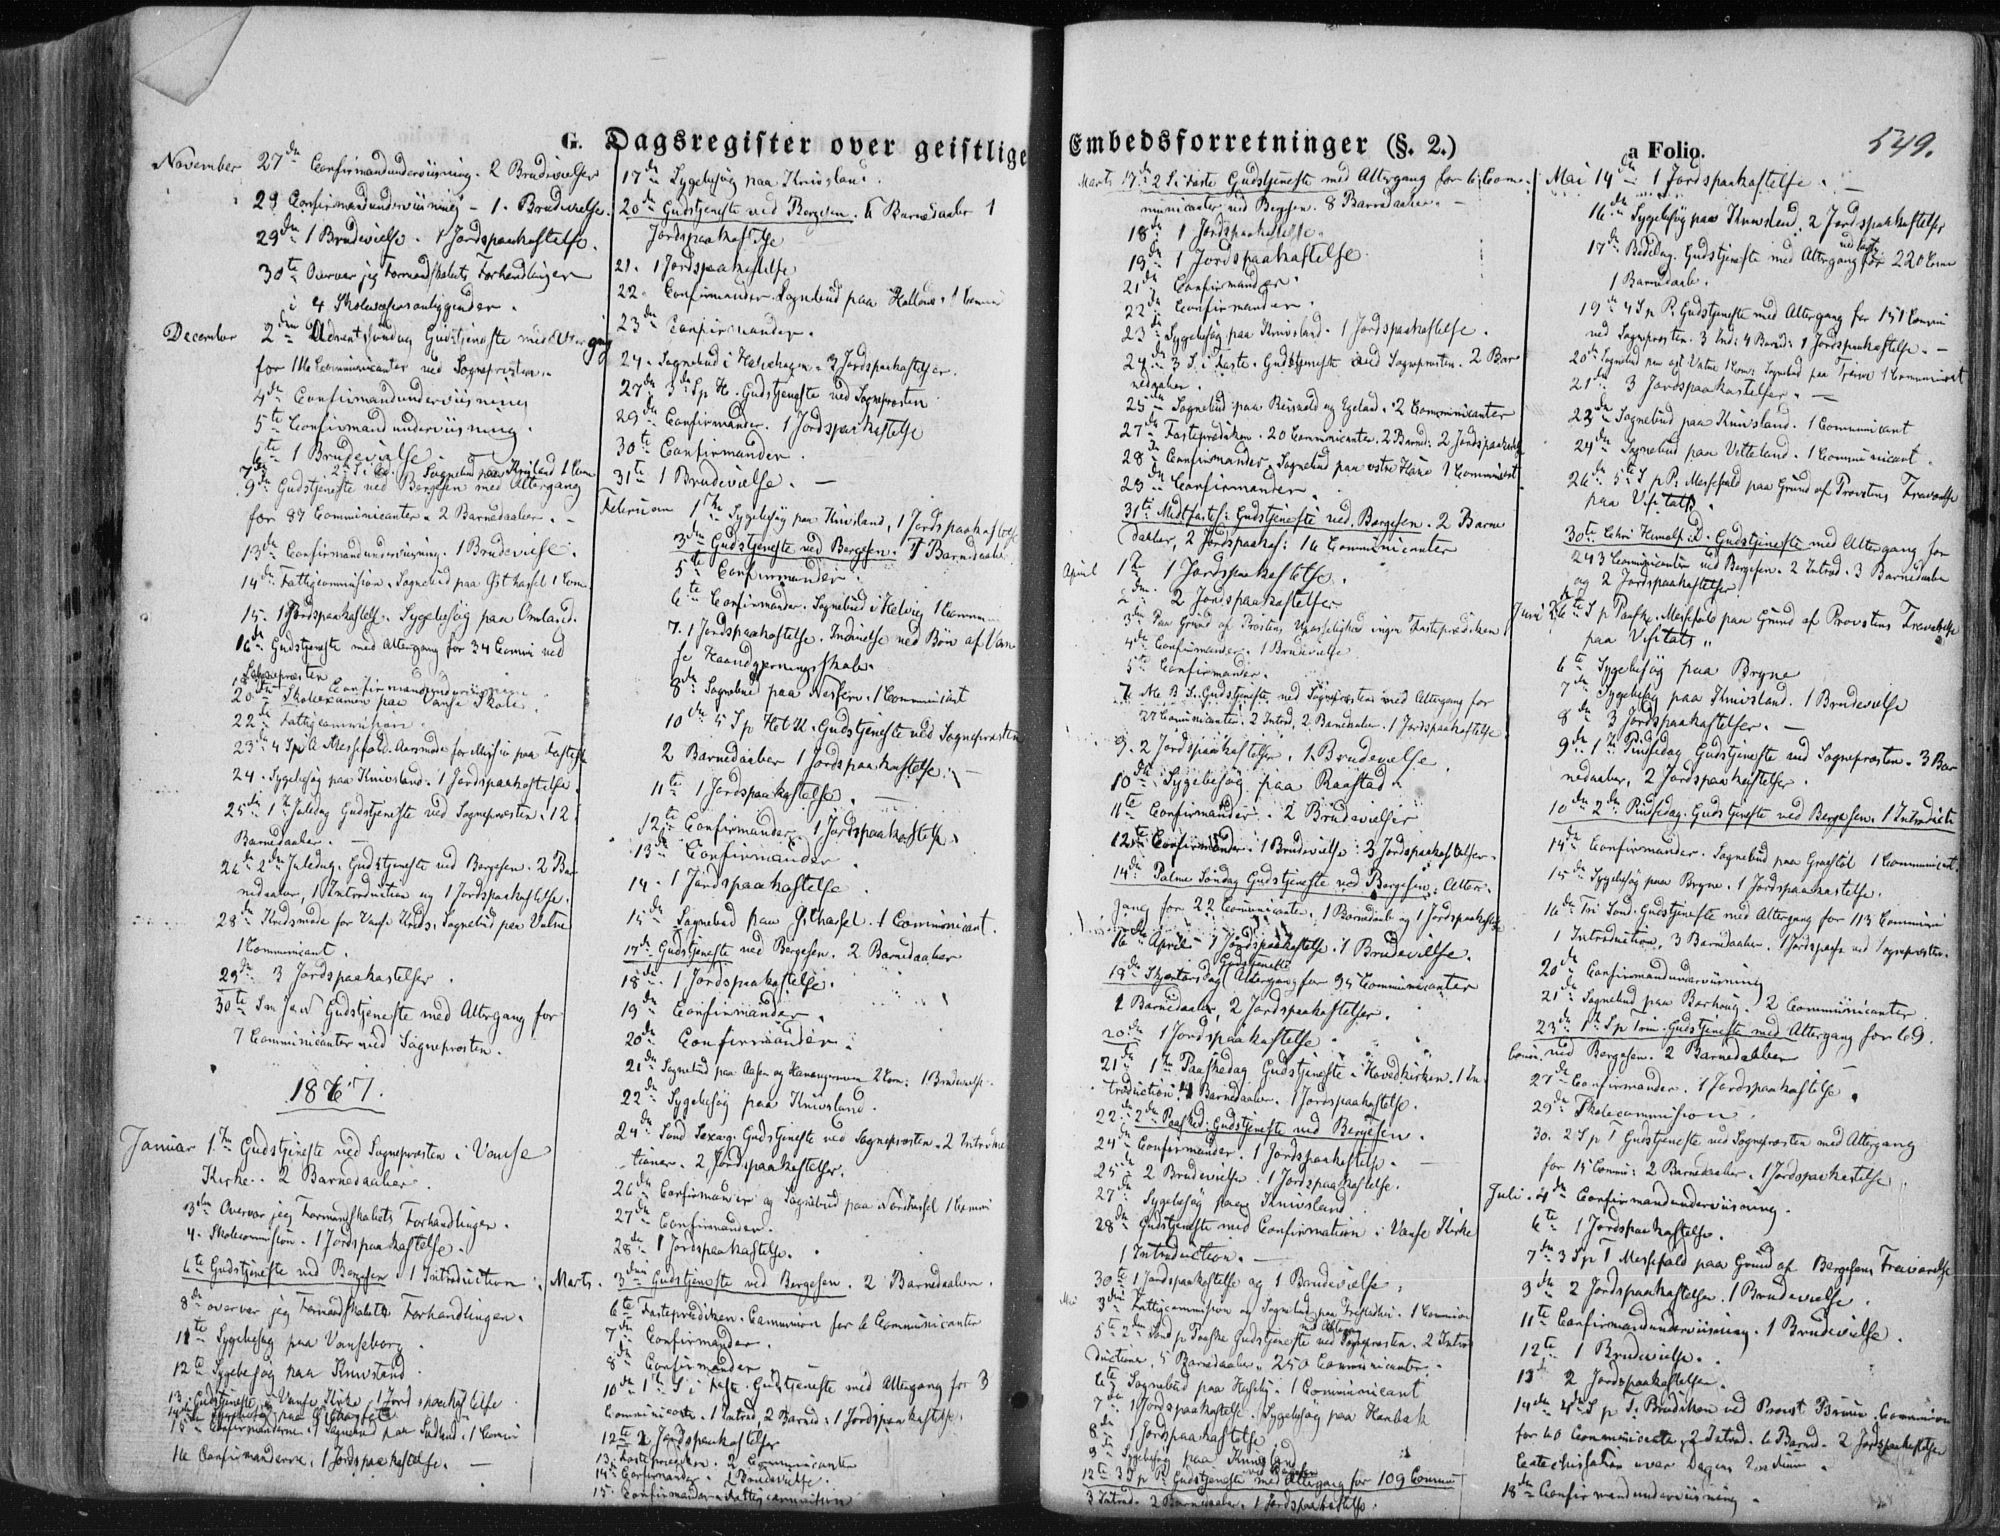 G. Dagsregister over geistlige Embedsforretninger (§. 2.)
a Folio.
549.
November 27de Confirmandunderviisning. 2 Brudevielser
29 Confirmandunderviisning - 1. Brudevielse.
29de 1 Brudevielse. 1 Jordspaakastelse.
30te Overvar jeg Formandskabets Forhandlinger
i 4
December 2den Adventssöndag Gudstjeneste med Altergang
for Communicanter ved Sogneprosten.
4de Confirmandunderviisning
5te Confirmandunderviisning.
6te 1 Brudevielse.
9de Gudstjeneste ved Bergesen med Altergang
for 87 Communicanter. 2 Barnedaaber. -
13de Confirmandunderviisning. 1 Brudevielse.
14de Fattigcommission. Sognebud paa Githassel 1 Com.
15. 1 Jordspaakastelse. Sygebesög paa Omland.
16de Gudstjeneste med Altergang for 34 Commu ved
Sogneprosten
20de Skoleexamen paa Vanse Skole.
22de Fattigcommission.
24. Sygebesög paa Knivsland. 1 Jordspaakastelse.
25de 1ste Juledag Gudstjeneste ved Sogneprosten. 12
Barnedaaber. -
26de 2den Juledag. Gudstjeneste ved Bergesen. 2 Bar
nedaaber, 1 Introduction og 1 Jordspaakastelse.
28de Kredsmöde for Vanse Kreds. Sognebud paa Vatne
1 Communicant.
29de 3 Jordspaakastelser.
30te Gudstjeneste med Altergang for
7 Communicanter ved Sogneprosten.
1867.
Januar 1ste Gudstjeneste ved Sogneprosten i Vanse
Kirke. 2 Barnedaaber.
3die Overvar jeg Formandskabets Forhandlinger.
4. Skolecommission. 1 Jordspaakastelse.
6te Gudstjeneste ved Bergesen. 1 Introduction.
8de overvar jeg Formandskabets Forhandlinger.
11te Sygebesög paa Vanseborg.
12te Sygebesög paa Knivsland.
13. Gudstjeneste i Vanse Kirke 1 Jordspaakastelse
16 Confirmanderne. 1 Jordspaakastelse. -
17de Sygebesög paa Knivsland.
20de Gudstjeneste ved Bergesen. Barnedaaber 1
Jordspaakastelse
21. 1 Jordspaakastelse
22. Confirmander. Sognebud paa
23de Confirmander.
24. Sognebud i 3 Jordspaakastelser.
27de 3de S p H. Gudstjeneste ved Sogneprosten
29de Confirmander. 1 Jordspaakastelse
30te Confirmander.
31te 1 Brudevielse. -
Februar 1ste Sygebesög paa Knivsland, 1 Jordspaakastelse
3die Gudstjeneste ved Bergesen. Barnedaaber
5te Confirmander.
6te Confirmander. Sognebud i Helvig 1 Commun
7. 1 Jordspaakastelse. Indvielse ved Bön af Van
se Haandgjerningsskole.
8de Sognebud paa 1 Communicant
10de 5 S p Hel K. Gudstjeneste ved Sogneprosten
2 Barnedaaber 1 Jordspaakastelse. -
11te 1 Jordspaakastelse. -
12te Confirmander. 1 Jordspaakastelse.
13de Confirmander.
14. 1 Jordspaakastelse.
15de Sognebud paa Githassel. 1 Communicant.
17de Gudstjeneste ved Bergesen. 2 Barnedaaber
18de 1 Jordspaakastelse.
19de Confirmander.
20de Confirmander.
21de Sognebud paa Aasen og 2 Com: 1 Brudevielse.
22de Sygebesög paa Knivsland.
24de Sönd Sexag. Gudstjeneste ved Sogneprosten. 2 Introduc
tioner. 2 Jordspaakastelser.
26de Confirmander og Sognebud paa Nordhassel 1 Commu
27de Confirmander.
28de 1 Jordspaakastelse.
Marts. 3die Gudstjeneste ved Bergesen. 2 Barnedaaber.
6te Fasteprædiken. Communion for 6 Communicanter
7de Confirmander.
8de Confirmander -
10de 1ste S i Faste. Gudstjeneste med Altergang for 3
Communicanter. 1 Introd, 2 Barned: 1 Jordspaakastelse.
12te 2 Jordspaakastelser
13. Fasteprædiken. 2 Communicanter
14de Confirmander. 2 Brudevielser.
15. Confirmander. Fattigcommission
Marts 17de 2 S i Faste Gudstjeneste med Altergang for 6 Com
municanter ved Bergesen. 8 Barnedaaber. -
18de 1 Jordspaakastelse.
19de 1 Jordspaakastelse.
21de Confirmander.
22de Confirmander.
23de Sygebesög paa Knivsland. 1 Jordspaakastelse.
24de 3 S. i Faste. Gudstjeneste ved Sogneprosten. 2 Bar
nedaaber.
25de Sognebud paa og 2 Communicanter
27de Fasteprædiken. 20 Communicanter. 2 Barned: 2 Jordspaakastelse
28de Confirmander. Sognebud paa 1 Communicant
29de Confirmander.
31te Midfaste: Gudstjeneste ved Bergesen. 2 Barne
daaber, 2 Jordspaakas: 16 Communicanter
April 1ste 1 Jordspaakastelse.
2den 2 Jordspaakastelser
3die Paa Grund af Prostens Upasselighed ingen Fasteprædiken
4de Confirmander. 1 Brudevielse
5te Confirmander.
7de M B S. Gudstjeneste ved Sogneprosten med Altergang for
27 Communicanter. 2 Introd. 2 Barnedaaber. 1 Jordspaakastelse.
9. 2 Jordspaakastelser. 1 Brudevielse.
10de Sygebesög paa Raastad.
11te Confirmander. 2 Brudevielser
12te Confirmander. 1 Brudevielse. 3 Jordspaakastelser.
14de Palme Söndag Gudstjeneste ved Bergesen. Alter
gang for 22 Communicanter. 1 Barnedaab og 1 Jordspaakastelse
16de April 1 Jordspaakastelse. 1 Brudevielse.
18de Skjærtorsdag Gudstjeneste Altergang for 95 Communicanter
2 Barnedaaber, 2 Jordspaakastelser.
20de 1 Jordspaakastelse.
21de 1ste Paaskedag Gudstjeneste i Hovedkirken. 1 In
troduction. 4 Barnedaaber. 1 Jordspaakastelse.
22de 2den Paasked: Gudstjeneste ved Bergesen.
24de Confirmander. 1 Jordspaakastelse. -
25de 2 Brudevielser. 1 Jordspaakastelse.
27de Sygebesög paa Knivsland
28de Gudstjeneste med Confirmation i Vanse Kirke
1 Introduction. -
30te 1 Jordspaakastelse og 1 Brudevielse.
Mai 3die Fattigcommission og Sognebud paa 1 Commun
5te 2den Sönd p Paaske Gudstjeneste med Altergang ved Sogneprosten. 2 Intro
ductioner, 5 Barnedaaber. 250 Communicanter.
6te Sognebud paa 1 Communicant
7de 1 Jordspaakastelse. Sygebesög paa Haabak
8de 1 Jordspaakastelse
9de Sygebesög paa Knivsland
12te 3 S p P: Gudstjeneste ved Bergesen med Altergang for 109 Commun
3 Introd. 2 Barnedaaber. 1 Jordspaakastelse.
Mai 14de 1 Jordspaakastelse. -
16de Sygebesög paa Knivsland. 2 Jordspaakastelser
17de Bededag. Gudstjeneste med Altergang for 220 Com
1 Barnedaab.
19de 4 S p P. Gudstjeneste med Altergang for 151 Commu
ved Sogneprosten. 3 Ind: 4 Barned: 1 Jordspaakastelse. -
21de 3 Jordspaakastelser. -
22de Sognebud paa Knivsland. 1 Communicant
24de Sognebud paa Vetteland. 1 Communicant.
26de 5te S p P. Messefald paa Grund af Provstens Fraværelse
paa Visitats.
30te Chri Himmelf: D. Gudstjeneste med Altergang for
243 Communicanter ved Bergesen. 2 Introd. 3 Barnedaaber
og 2 Jordspaakastelser.
Juni 2. 6te S p Paaske. Messefald paa Grund af Provstens Fraværelse
paa Visitats.
6te Sygebesög paa Bryne
7de Sygebesög paa Knivsland. 1 Brudevielse
8de 3 Jordspaakastelser. -
9de 1ste Pindsedag Gudstjeneste ved Sogneprosten. 3 Bar
nedaaber, 2 Jordspaakastelser.
10de 2den Pindsedag. Gudstjeneste ved Bergesen. 1 Introducti
14de Confirmander. Sognebud paa 1 Communicant.
15de Sygebesög paa Bryne. 1 Jordspaakastelse.
16de Tri Sönd. Gudstjeneste med Altergang for 113 Commun
1 Introduction, 3 Barnedaaber. 1 Jordspaa ved Sogneprosten.
20de Confirmandunderviisning
21de Sognebud paa Borhoug. 2 Communicanter.
23de 1ste S p Trin. Gudstjeneste med Altergang for 69
Comm. ved Bergesen. 2 Barnedaaber
27de Confirmander. 1 Jordspaakastelse.
29de Skolecommission.
30. 2 S p T Gudstjeneste ved Sogneprosten med Altergang
for 15 Commu: 2 Barnedaaber. 1 Jordspaakastelse.
Juli. 4de Confirmandunderviisning.
6te 1 Jordspaakastelse.
7de 3 S p T Messefald paa Grund af Bergesens Fraværelse
9de 2 Jordspaakastelser. 1 Brudevielse.
11te Confirmandunderviisning. 1 Brudevielse.
12te 1 Brudevielse.
13de 2 Jordspaakastelser.
14de 4de S p T. Prædiken ved Provst Communion
for 60 Communicanter, 2 Introd. 6 Barned. 2 Jordspaakastelser
Catechisation over Dagens
18de Confirmandunderviisning.